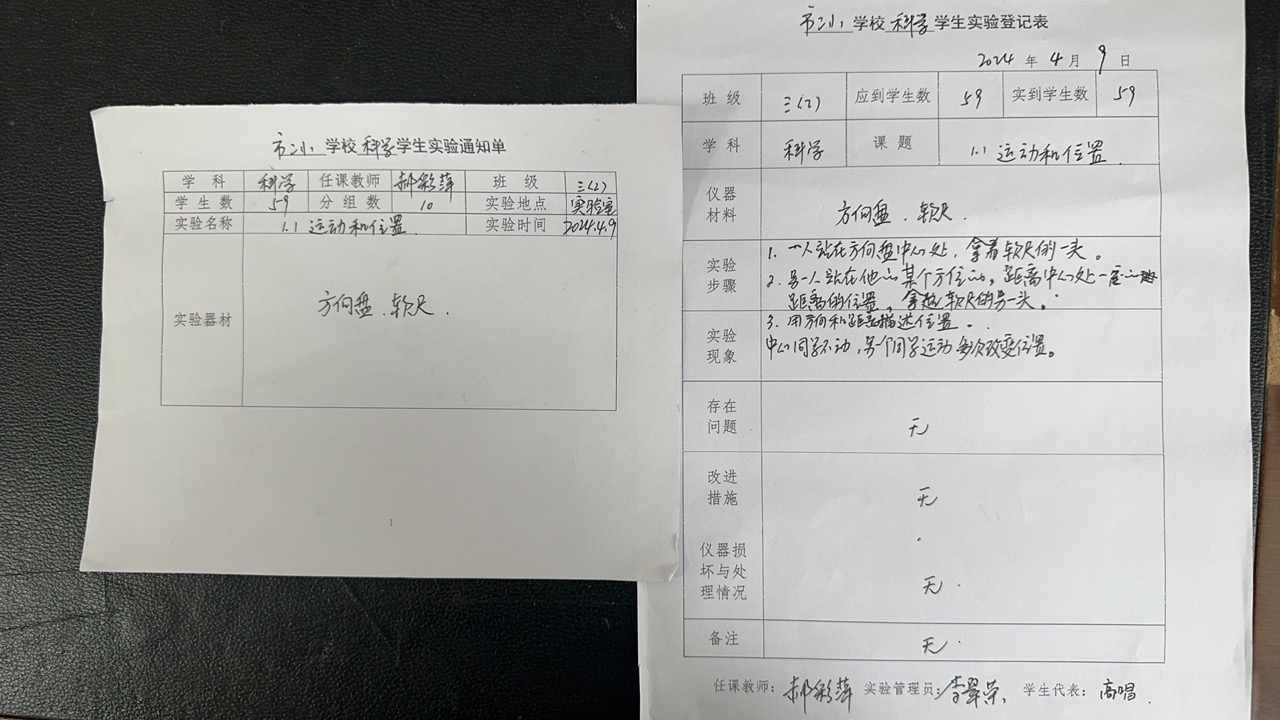 市三小 学校 科学 学生实验通知单
学 科 科学 任课教师 郝彩萍 班 级 三(2)
学 生 数 59 分 组 数 10 实验地点 实验室
实验名称 1.1 运动和位置 实验时间 2024.4.9
实验器材 方向盘、软尺.
市三小 学校 科学 学生实验登记表
2024 年 4 月 9 日
班 级 三(2) 应到学生数 59 实到学生数 59
学 科 科学 课 题 1.1 运动和位置
仪器
材料
方向盘、软尺.
实验
步骤
1. 一人站在方向盘中心处,拿着软尺的一头。
2. 另一人站在他的某个方位的,距离中心处一定的
距离的位置,拿起软尺的另一头。
3. 用方向和距离描述位置。
实验
现象
中心同学不动,另一个同学运动多次改变位置。
存在
问题
无
改进
措施
无
仪器损
坏与处
理情况
无.
备注
无.
任课教师: 郝彩萍 实验管理员: 李翠荣 学生代表: 高唱.